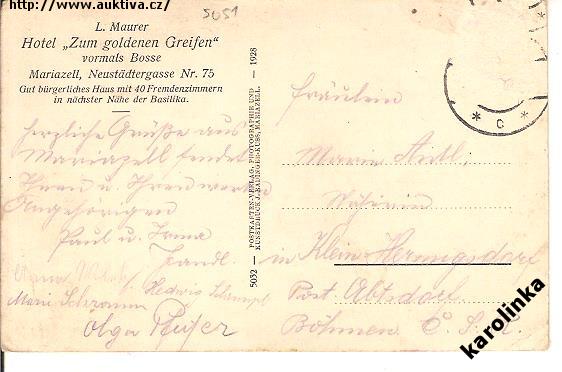 http://www.auktiva.cz/
5051
L. Maurer
Hotel „Zum goldenen Greifen"
vormals Bosse
Mariazell, Neustädtergasse Nr. 75
Gut bürgerliches Haus mit 40 Fremdenzimmern
in nächster Nähe der Basilika.
Herzliche Grüße aus
Mariazell sendet
Ihnen u. Ihren werten
Angehörigen
Paul u. Anna
Hedwig
Marie Schramm
Olga
5052 — POSTKARTEN-VERLAG, PHOTOGRAPHIE UND — 1928
KUNSTDRUCK J. BADINGER-KUSS, MARIAZELL.
* C *
Fräulein
Marie
in Klein Hermigsdorf
Post Abtsdorf
Böhmen Č. S. R.
karolinka